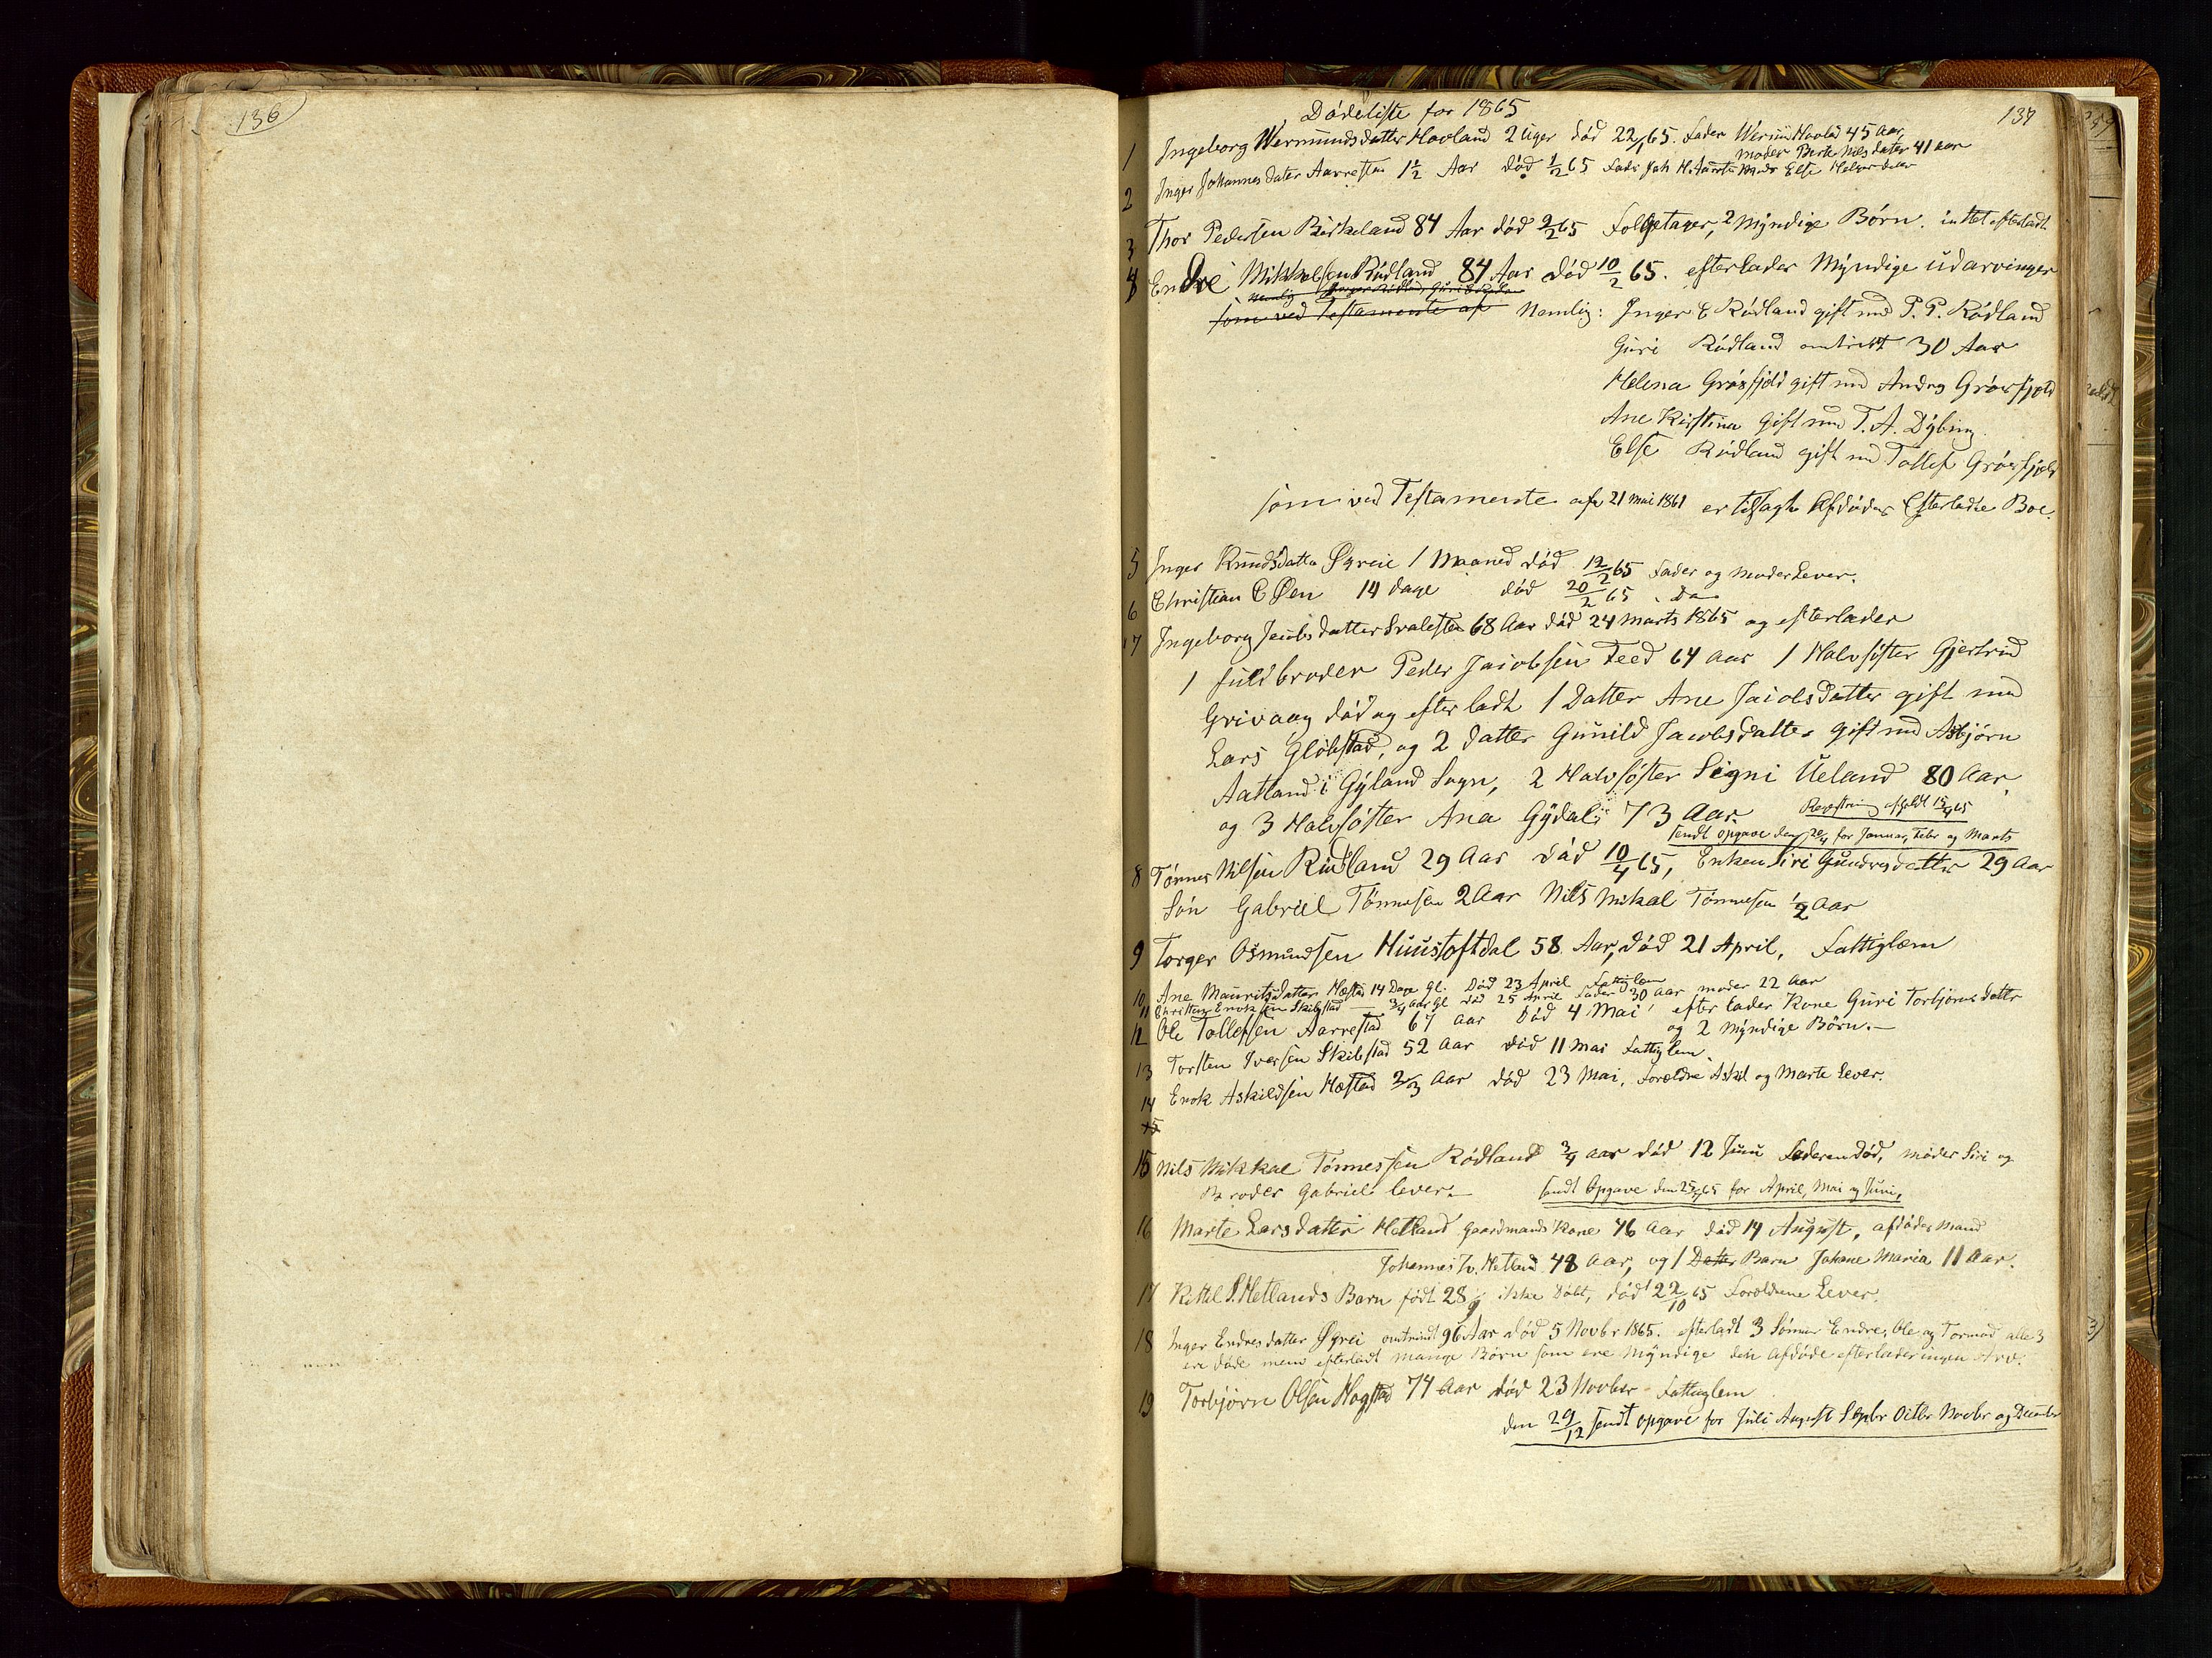 136
137
Dödeliste for 1865
1 Ingeborg Wermundsdatter Hovland 2 Uger död 22/1 65. Fader Werm Hovland 45 Aar,
moder Berte Nilsdater 41 aar
2 Inger Johannesdater Aarrestad 1 1/2 Aar död 1/2 65 Fader Joh H. Aarrestad Moder Else
3 Thor Pedersen Birkeland 84 Aar död 9/2 65 Folgetager, 2 Myndige Börn. intet efterladt
4 Endre Mikkelsen Rödland 84 Aar död 10/2 65. efterlader Myndige udarvinger
nemlig Inger Rödland, Guri Rödland
som ved Testamente af Nemlig: Inger E Rödland gift med P. P. Rödland
Guri Rödland omtrent 30 Aar
Helena Grösfjeld gift med Andreas Grösfjeld
Ane Kirstina gift med T. A. Dybing
Else Rödland gift med Tollef Grösfjeld
som ved Testamente af 21 mai 1861 er tilsagt Afdödes Efterladte Boe.
5 Inger Knudsdatter Øyreie 1 Maaned död 12/2 65 Fader og Moder Lever.
6 Christian E Øen 14 dage död 20/2 65 . Do
7 Ingeborg Jacobsdatter Svalestad 68 Aar död 24 Marts 1865 og efterlader
1 fuldbroder Peder Jacobsen Feed 64 Aar 1 Halvsöster Gjertrud
Grivaag död og efterladt 1 Datter Ane Jacobsdatter gift med
Lars Glöbstad, og 2 datter Gunild Jacobsdatter gift med Asbjörn
Aatland i Gyland Sogn, 2 Halvsöster Signi Ueland 80 Aar,
og 3 Halvsöster Ana Gydal 73 Aar. Registrering afholdt 15/4 65
sendt opgave den 20/4 for Januar, Febr og Marts
8 Tönnes Nilsen Rödland 29 Aar död 10/4 65, Enken Siri Gundersdatter 29 Aar
Sön Gabriel Tönnesen 2 Aar Nils Mikal Tönnesen 1/2 Aar
9 Torger Osmundsen Huustoftdal 58 Aar, död 21 April, Fattiglem
10 Ane Mauritsdatter Hæstad 14 Dage gl. Död 23 April Fattiglem
11 Christian Enoksen Skibstad 3/4 Aar gl död 25 April Fader 30 Aar moder 22 Aar
12 Ole Tollefsen Aarrestad 67 aar Död 4 Mai efterlader Kone Guri Torbjörnsdatter
og 2 Myndige Börn.—
13 Torsten Iversen Skibstad 52 Aar död 11 Mai Fattiglem.
14 Enok Askildsen Hæstad 2/3 Aar död 23 Mai, Forældre Askild og Marte Lever.
15
15 Nils Mikkal Tönnessen Rödland 3/4 aar död 12 Juni Faderen död, moder Siri og
Broder Gabriel lever.— sendt Opgave den 25/7 65 for April, Mai og Juni,
16 Marte Larsdatter Hetland Gaardmands Kone 46 Aar död 14 August, afdödes Mand
Johannes Tv. Hetland 48 Aar, og 1 Datter Barn Johane Maria 11 Aar.
17 Kittel S. Hetlands Barn födt 28/9 ikke Döbt, död 22/10 65 Forældrene Lever.
18 Inger Endresdatter Øyrei omtrindt 96 Aar död 5 Novbr 1865. efterladt 3 Sönner Endre, Ole og Tormod alle 3
ere döde menn efterladt mange Börn som ere Myndige den afdöde efterlader ingen Arv.
19 Torbjörn Olsen Hogstad 74 Aar död 23 Novber - Fattiglem
den 29/12 sendt opgave for Juli August Sepbr Octbr Novbr og December